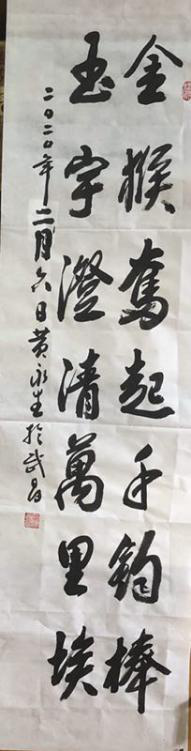 金猴奮起千鈞棒
玉宇澄清萬里埃
二〇二〇年二月六日黄永生於武昌